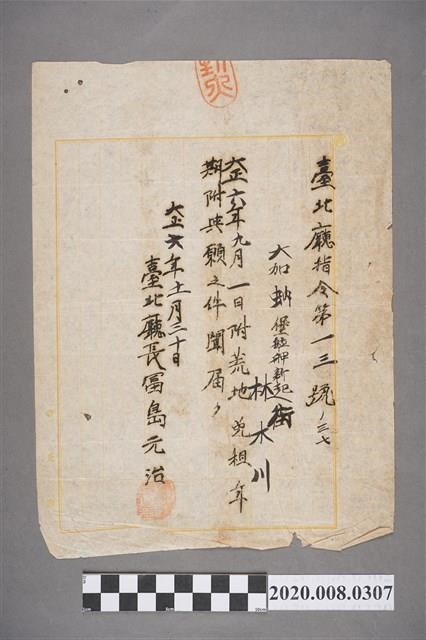 臺北廳指令第一三號ノ三七
大加蚋堡艋舺新起街
林木川
大正六年九月一日附荒地免租年
期附與願之件聞届ク
大正六年十一月三十日
臺北廳長富島元治
2020.008.0307